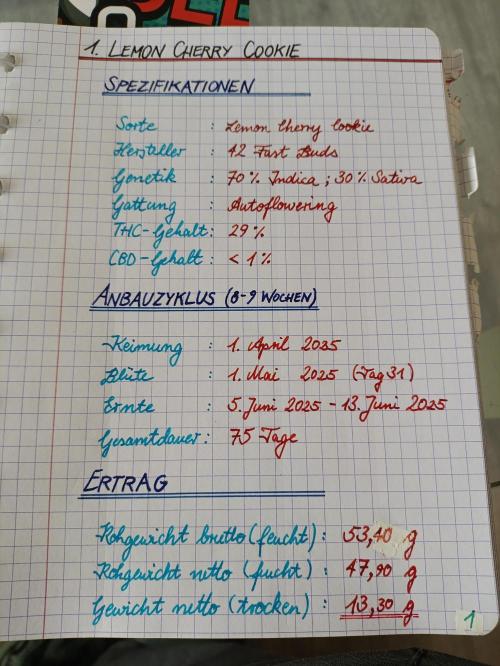 1. LEMON CHERRY COOKIE
SPEZIFIKATIONEN
Sorte : Lemon Cherry Cookie
Hersteller : 42 Fast Buds
Genetik : 70% Indica ; 30% Sativa
Gattung : Autoflowering
THC-Gehalt : 29%
CBD-Gehalt : < 1%
ANBAUZYKLUS (8-9 WOCHEN)
Keimung : 1. April 2025
Blüte : 1. Mai 2025 (Tag 31)
Ernte : 5. Juni 2025 - 13. Juni 2025
Gesamtdauer : 75 Tage
ERTRAG
Rohgewicht brutto (feucht) : 53,40 g
Rohgewicht netto (feucht) : 47,90 g
Gewicht netto (trocken) : 13,30 g
1